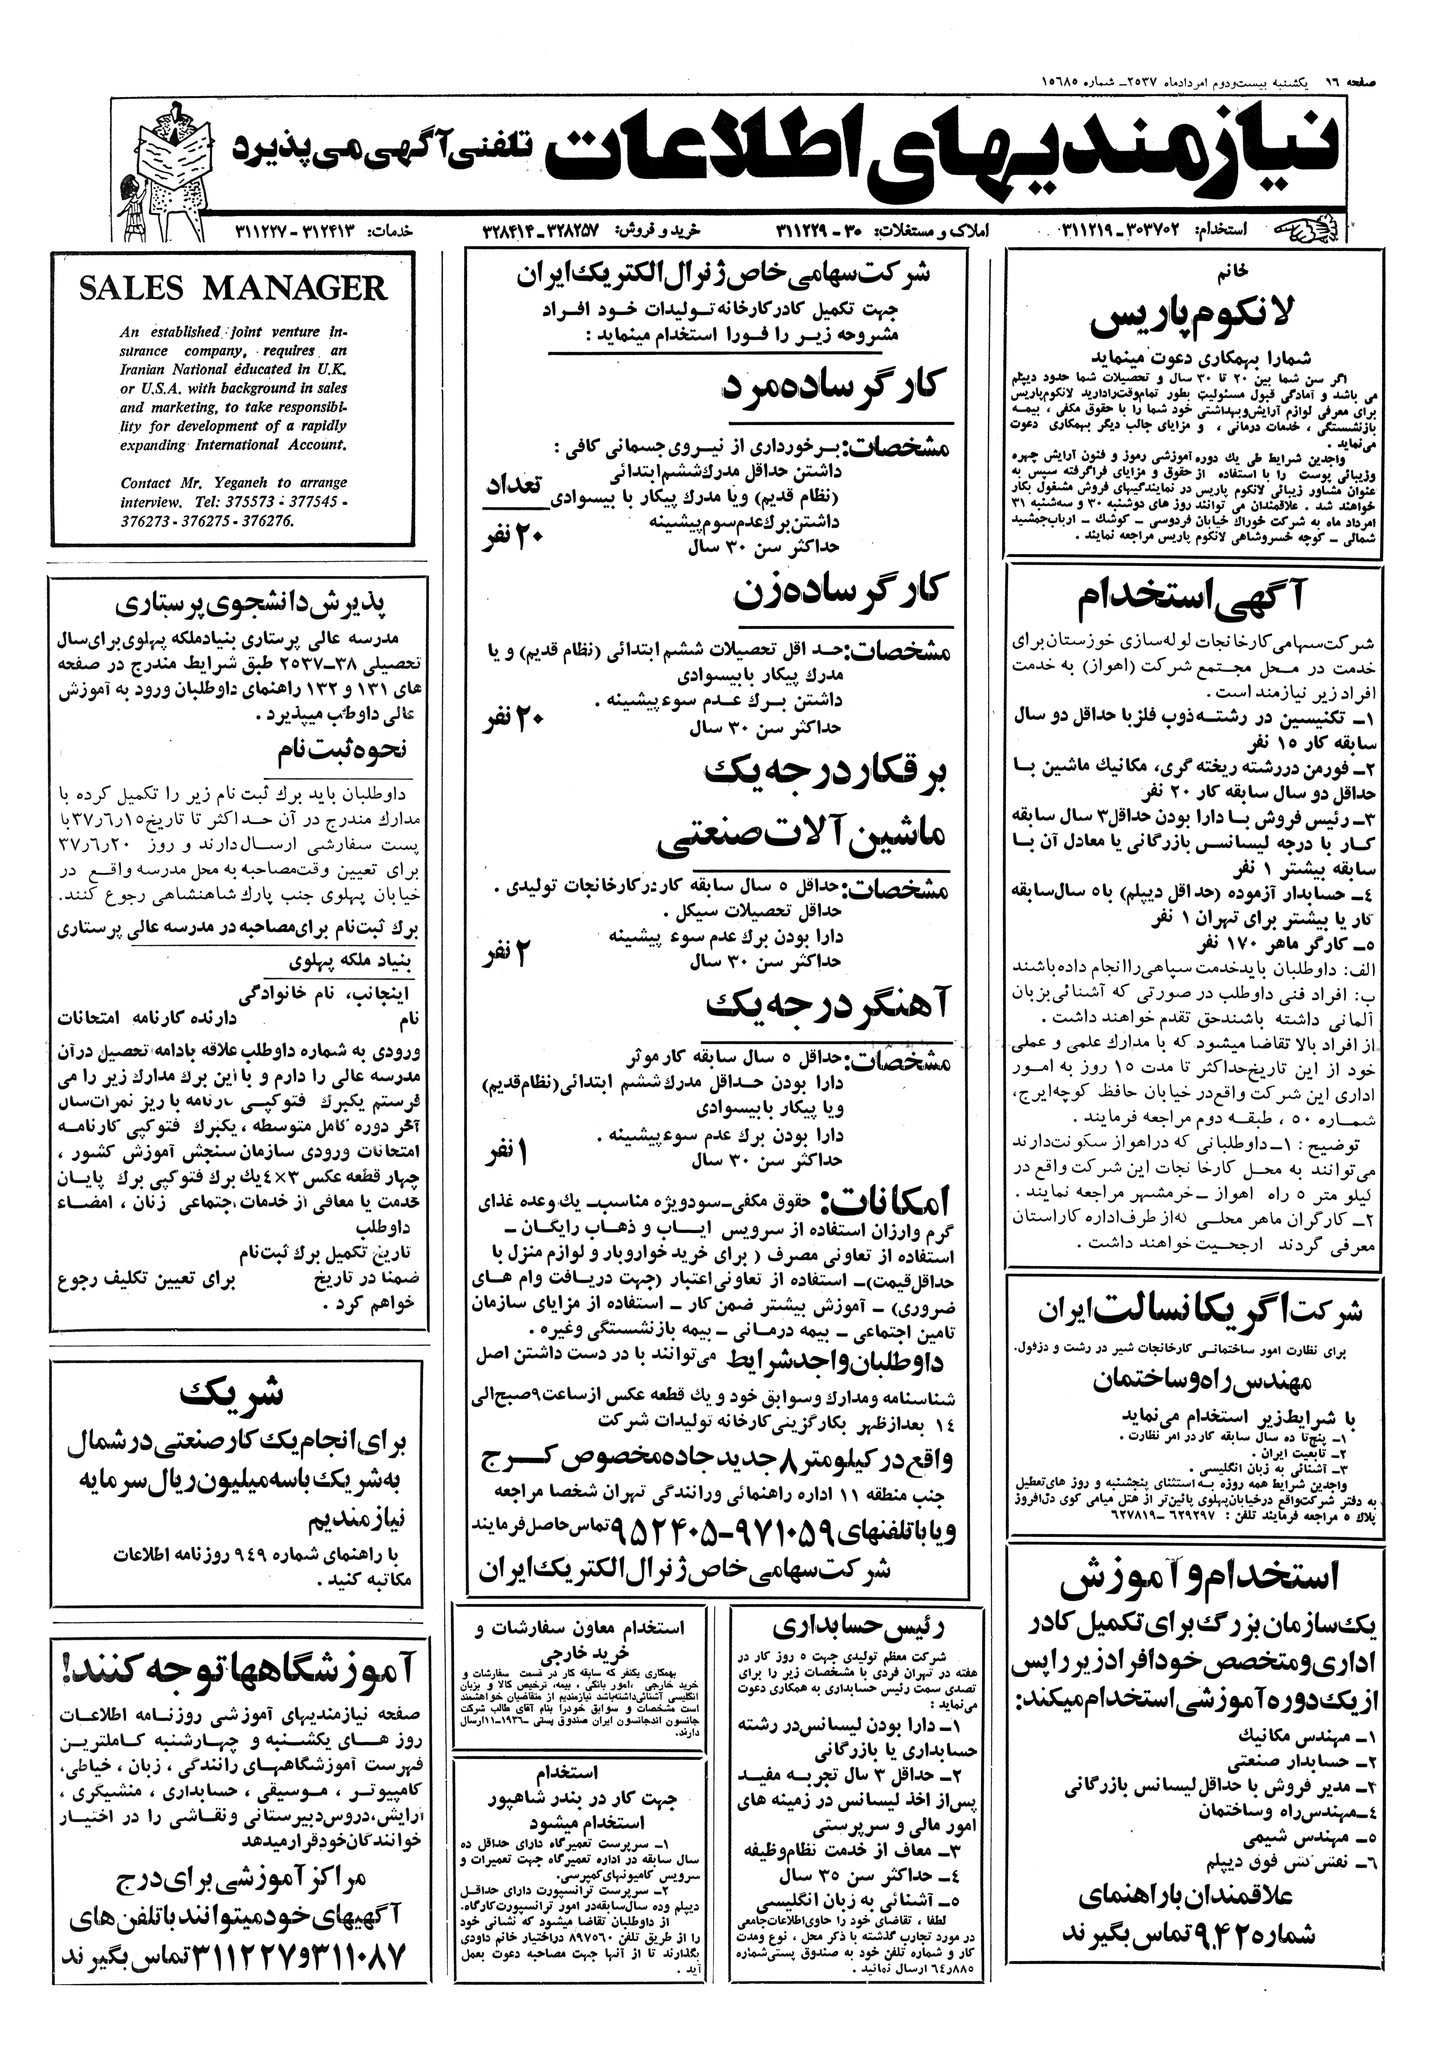 صفحه ۱۶ یکشنبه بیست‌ودوم امردادماه ۲۵۳۷ـ شماره ۱۵۶۸۵
نیازمندیهای اطلاعات تلفنی آگهی می‌پذیرد
استخدام: ۳۰۳۷۰۲ـ۳۱۱۲۱۹ املاک و مستغلات: ۳۰ - ۳۱۱۲۲۹ خرید و فروش: ۳۲۸۲۵۷ـ۳۲۸۴۱۴ خدمات: ۳۱۲۴۱۳ - ۳۱۱۲۲۷
خانم
لانکوم پاریس
شمارا بهمکاری دعوت مینماید
اگر سن شما بین ۲۰ تا ۳۰ سال و تحصیلات شما حدود دیپلم
می باشد و آمادگی قبول مسئولیت بطور تمام‌وقت‌رادارید لانکوم‌پاریس
برای معرفی لوازم آرایش‌وبهداشتی خود شما را با حقوق مکفی ، بیمه
بازنشستگی ، خدمات درمانی ، و مزایای جالب دیگر بهمکاری دعوت
می‌نماید .
واجدین شرایط طی یك دوره آموزشی رموز و فنون آرایش چهره
وزیبائی پوست را با استفاده از حقوق و مزایای فراگرفته سپس به
عنوان مشاور زیبائی لانکوم پاریس در نمایندگیهای فروش مشغول بکار
خواهند شد . علاقمندان می توانند روز های دوشنبه ۳۰ و سه‌شنبه ۳۱
امرداد ماه به شرکت خوراك خیابان فردوسی ـ کوشك ـ ارباب‌جمشید
شمالی ـ کوچه خسروشاهی لانکوم پاریس مراجعه نمایند .
آگهی استخدام
شرکت‌سهامی‌کارخانجات لوله‌سازی خوزستان برای
خدمت در محل مجتمع شرکت (اهواز) به خدمت
افراد زیر نیازمند است .
۱ـ تکنیسین در رشته ذوب فلز با حداقل دو سال
سابقه کار ۱۵ نفر
۲ـ فورمن دررشته ریخته گری، مکانیك ماشین با
حداقل دو سال سابقه کار ۲۰ نفر
۳ـ رئیس فروش با دارا بودن حداقل۳ سال سابقه
کار با درجه لیسانس بازرگانی یا معادل آن با
سابقه بیشتر ۱ نفر
۴ـ حسابدار آزموده (حداقل دیپلم) با۵ سال‌سابقه
کار یا بیشتر برای تهران ۱ نفر
۵ـ کارگر ماهر ۱۷۰ نفر
الف: داوطلبان بایدخدمت سپاهی‌راانجام داده‌باشند
ب: افراد فنی داوطلب در صورتی که آشنائی‌بزبان
آلمانی داشته باشندحق تقدم خواهند داشت .
از افراد بالا تقاضا میشود که با مدارك علمی و عملی
خود از این تاریخ‌حداکثر تا مدت ۱۵ روز به امور
اداری این شرکت واقع‌در خیابان حافظ کوچه‌ایرج،
شماره ۵۰ ، طبقه دوم مراجعه فرمایند .
توضیح : ۱ـ داوطلبانی که دراهواز سکونت‌دارند
می‌توانند به محل کارخانجات این شرکت واقع در
کیلو متر ۵ راه اهواز ـ خرمشهر مراجعه نمایند .
۲ـ کارگران ماهر محلی که‌از طرف‌اداره کاراستان
معرفی گردند ارجحیت‌خواهند داشت .
شرکت اگریکانسالت ایران
برای نظارت امور ساختمانی کارخانجات شیر در رشت و دزفول.
مهندس راه‌وساختمان
با شرایط‌زیر استخدام می‌نماید
۱ـ پنج‌تا ده سال سابقه کاردر امر نظارت .
۲ـ تابعیت ایران .
۳ـ آشنائی به زبان انگلیسی .
واجدین شرایط همه روزه به استثنای پنجشنبه و روز های‌تعطیل
به دفتر شرکت‌واقع درخیابان‌پهلوی پائین‌تر از هتل میامی کوی دل‌افروز
پلاك ۵ مراجعه فرمایند تلفن : ۶۲۹۲۹۷ ـ۶۲۷۸۱۹
استخدام و آموزش
یك سازمان بزرگ برای تکمیل کادر
اداری و متخصص خود افراد زیر را پس
از یك دوره آموزشی استخدام میکند:
۱ـ مهندس مکانیك
۲ـ حسابدار صنعتی
۳ـ مدیر فروش با حداقل لیسانس بازرگانی
۴ـ مهندس راه وساختمان
۵ـ مهندس شیمی
۶ـ نقشه کش فوق دیپلم
علاقمندان با راهنمای
شماره ۹۰۴۲ تماس بگیرند
شرکت سهامی خاص ژنرال الکتریک ایران
جهت تکمیل کادرکارخانه تولیدات خود افراد
مشروحه زیر را فورا استخدام مینماید :
کارگر ساده مرد
مشخصات: برخورداری از نیروی جسمانی کافی :
داشتن حداقل مدرك‌ششم‌ابتدائی
(نظام قدیم) ویا مدرك پیکار با بیسوادی
داشتن‌برك عدم‌سوم‌پیشینه
حداکثر سن ۳۰ سال
تعداد
۲۰ نفر
کارگر ساده زن
مشخصات: حد اقل تحصیلات ششم ابتدائی (نظام قدیم) و یا
مدرك پیکار بابیسوادی
داشتن برك عدم سوءپیشینه .
حداکثر سن ۳۰ سال
۲۰ نفر
برقکار درجه یك
ماشین آلات صنعتی
مشخصات: حداقل ۵ سال سابقه کار درکارخانجات تولیدی .
حداقل تحصیلات سیکل .
دارا بودن برك عدم سوء پیشینه
حداکثر سن ۳۰ سال
۲ نفر
آهنگر درجه یك
مشخصات: حداقل ۵ سال سابقه کار موثر
دارا بودن حداقل مدرك‌ششم ابتدائی(نظام‌قدیم)
ویا پیکار بابیسوادی
دارا بودن برك عدم سوءپیشینه .
حداکثر سن ۳۰ سال
۱ نفر
امکانات: حقوق مکفی‌ـ‌سودویژه مناسب‌ـ یك‌وعده غذای
گرم وارزان استفاده از سرویس ایاب و ذهاب رایگان ـ
استفاده از تعاونی مصرف ( برای خرید خواروبار و لوازم منزل با
حداقل‌قیمت)ـ استفاده از تعاونی‌اعتبار (جهت دریافت وام های
ضروری) ـ آموزش بیشتر ضمن کار ـ استفاده از مزایای سازمان
تامین اجتماعی ـ بیمه درمانی ـ بیمه بازنشستگی وغیره .
داوطلبان واجد شرایط می‌توانند با در دست داشتن اصل
شناسنامه ومدارك وسوابق خود و یك قطعه عکس ازساعت۹صبح‌الی
۱۴ بعدازظهر بکارگزینی‌کارخانه تولیدات شرکت
واقع در کیلومتر ۸ جدید جاده مخصوص کرج
جنب منطقه ۱۱ اداره راهنمائی ورانندگی تهران شخصا مراجعه
ویا با تلفنهای ۹۷۱۰۵۹ـ۹۵۲۴۰۵ تماس حاصل‌فرمایند
شرکت سهامی خاص ژنرال الکتریک ایران
رئیس حسابداری
شرکت معظم تولیدی جهت ۵ روز کار در
هفته در تهران فردی با مشخصات زیر را برای
تصدی سمت رئیس حسابداری به همکاری دعوت
می‌نماید :
۱ـ دارا بودن لیسانس‌در رشته
حسابداری یا بازرگانی
۲ـ حداقل ۳ سال تجربه مفید
پس‌از اخذ لیسانس در زمینه های
امور مالی و سرپرستی
۳ـ معاف از خدمت نظام‌وظیفه
۴ـ حداکثر سن ۳۵ سال
۵ـ آشنائی به زبان انگلیسی
لطفا ، تقاضای خود را حاوی‌اطلاعات‌جامعی
در مورد تجارب گذشته با ذکر محل ، نوع ومدت
کار و شماره تلفن خود به صندوق پستی‌شماره
۶۴ر۸۸۵ ارسال نمائید .
استخدام معاون سفارشات و
خرید خارجی
بهمکاری یکنفر که سابقه کار در قسمت سفارشات و
خرید خارجی ،امور بانکی ، بیمه، ترخیص کالا و بزبان
انگلیسی آشنائی‌داشته‌باشد نیازمندیم از متقاضیان خواهشمند
است مشخصات و سوابق خودرا بنام آقای طالب شرکت
جانسون اندجانسون ایران صندوق پستی ۱۹۳۶-۱۱ارسال
دارند.
استخدام
جهت کار در بندر شاهپور
استخدام میشود
۱ـ سرپرست تعمیرگاه دارای حداقل ده
سال سابقه در اداره تعمیرگاه جهت تعمیرات و
سرویس کامیونهای‌کمپرسی.
۲ـ سرپرست ترانسپورت دارای حداقل
دیپلم وده سال‌سابقه‌در امور ترانسپورت‌کارگاه.
از داوطلبان تقاضا میشود که نشانی خود
را از طریق تلفن ۸۹۷۵۶۰ دراختیار خانم داودی
بگذارند تا از آنها جهت مصاحبه دعوت بعمل
آید .
SALES MANAGER
An established joint venture in-
surance company, requires an
Iranian National educated in U.K.
or U.S.A. with background in sales
and marketing, to take responsibi-
lity for development of a rapidly
expanding International Account.
Contact Mr. Yeganeh to arrange
interview. Tel: 375573 - 377545 -
376273 - 376275 - 376276.
پذیرش دانشجوی پرستاری
مدرسه عالی پرستاری بنیادملکه پهلوی‌برای‌سال
تحصیلی ۳۸ـ۲۵۳۷ طبق شرایط مندرج در صفحه
های ۱۳۱ و ۱۳۲ راهنمای داوطلبان ورود به آموزش
عالی داوطلب میپذیرد .
نحوه ثبت نام
داوطلبان باید برك ثبت نام زیر را تکمیل کرده با
مدارك مندرج در آن حداکثر تا تاریخ۱۵ر۶ر۳۷با
پست سفارشی ارسال‌دارند و روز ۲۰ر۶ر۳۷
برای تعیین وقت‌مصاحبه به محل مدرسه واقع در
خیابان پهلوی جنب پارك شاهنشاهی رجوع کنند.
برك ثبت‌نام برای‌مصاحبه در مدرسه عالی پرستاری
بنیاد ملکه پهلوی
اینجانب، نام خانوادگی
نام دارنده کارنامه امتحانات
ورودی به شماره داوطلب علاقه بادامه تحصیل درآن
مدرسه عالی را دارم و بااین برك مدارك زیر را می
فرستم یکبرك فتوکپی کارنامه با ریز نمرات‌سال
آخر دوره کامل متوسطه ، یکبرك فتوکپی کارنامه
امتحانات ورودی سازمان سنجش آموزش کشور ،
چهار قطعه عکس ۳×۴یك برك فتوکپی برك پایان
خدمت یا معافی از خدمات اجتماعی زنان ، امضاء
داوطلب
تاریخ تکمیل برك ثبت‌نام
ضمنا در تاریخ برای تعیین تکلیف رجوع
خواهم کرد .
شریك
برای انجام یك کار صنعتی در شمال
به شریك با سه میلیون ریال سرمایه
نیازمندیم
با راهنمای شماره ۹۴۹ روزنامه اطلاعات
مکاتبه کنید .
آموزشگاهها توجه کنند!
صفحه نیازمندیهای آموزشی روزنامه اطلاعات
روز های یکشنبه و چهارشنبه کاملترین
فهرست آموزشگاههای رانندگی ، زبان ، خیاطی،
کامپیوتر ، موسیقی ، حسابداری ، منشیگری ،
آرایش،دروس‌دبیرستانی ونقاشی را در اختیار
خوانندگان‌خودقرارمیدهد
مراکز آموزشی برای درج
آگهیهای خود میتوانند با تلفن های
۳۱۱۰۸۷و۳۱۱۲۲۷ تماس بگیرند